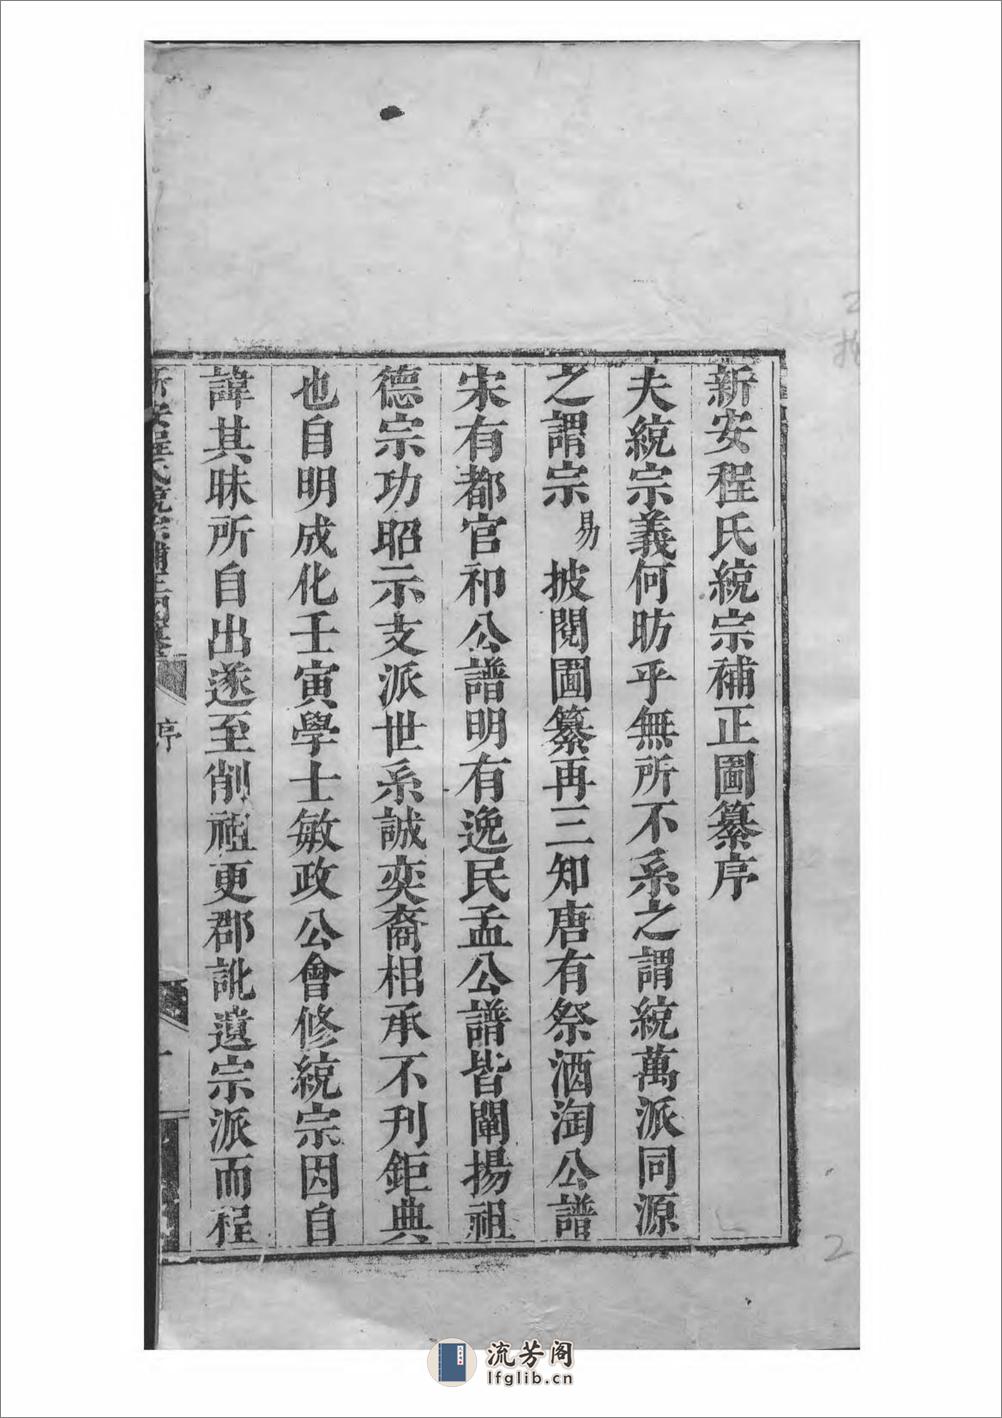 新安程氏統宗補正圖纂序
夫統宗義何昉乎無所不系之謂統萬派同源
之謂宗易披閱圖纂再三知唐有祭酒淘公譜
宋有都官祁公譜明有逸民孟公譜皆闡揚祖
德宗功昭示支派世系誠奕裔相承不刋鉅典
也自明成化壬寅學士敏政公會修統宗因自
諱其昧所自出遂至削祖更郡訛遺宗派而程
新安程氏統宗補正圖纂
序
一
2
流芳阁
lfglib.cn